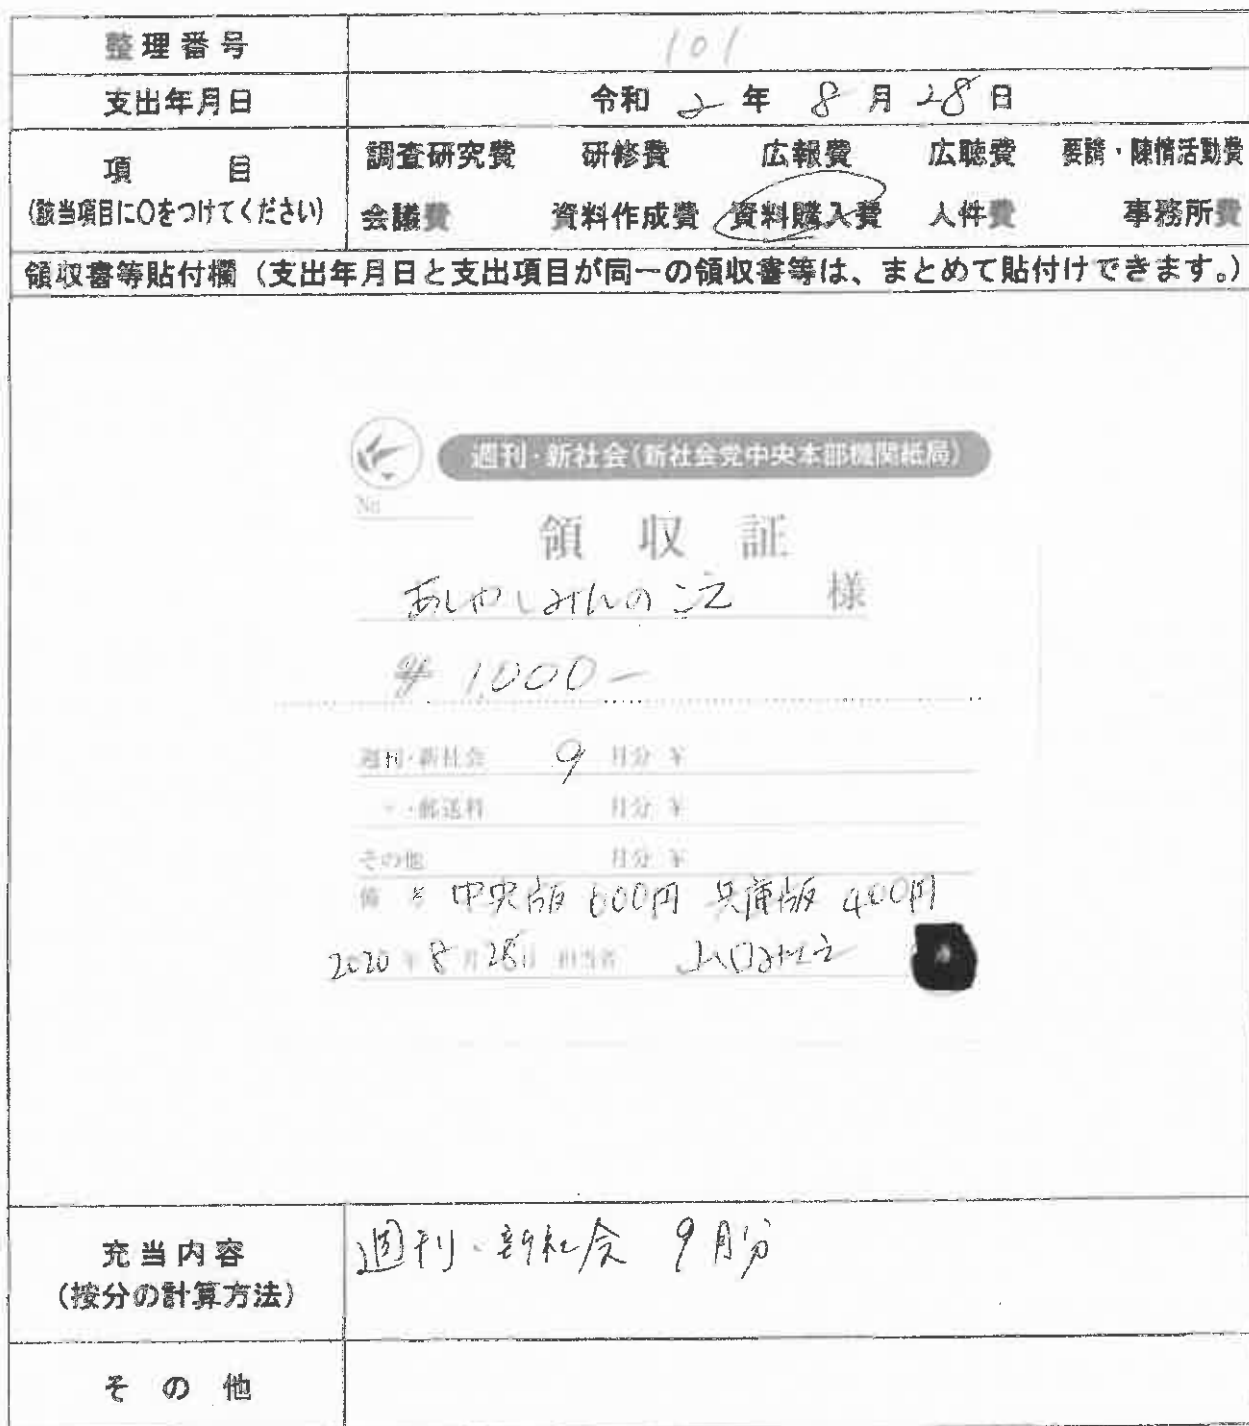 整理番号 101
支出年月日 令和 2 年 8 月 28 日
項目 調査研究費 研修費 広報費 広聴費 要請・陳情活動費
(該当項目に○をつけてください) 会議費 資料作成費 資料購入費 人件費 事務所費
領収書等貼付欄（支出年月日と支出項目が同一の領収書等は、まとめて貼付けできます。）
週刊・新社会(新社会党中央本部機関紙局)
No.
領収証
あしやしみんのこえ 様
¥ 1,000-
週刊・新社会 9 月分 ¥
〃・郵送料 月分 ¥
その他 月分 ¥
備考 中央版 600円 兵庫版 400円
2020 年 8 月 28 日 担当者
充当内容 週刊・新社会 9月分
(按分の計算方法)
その他